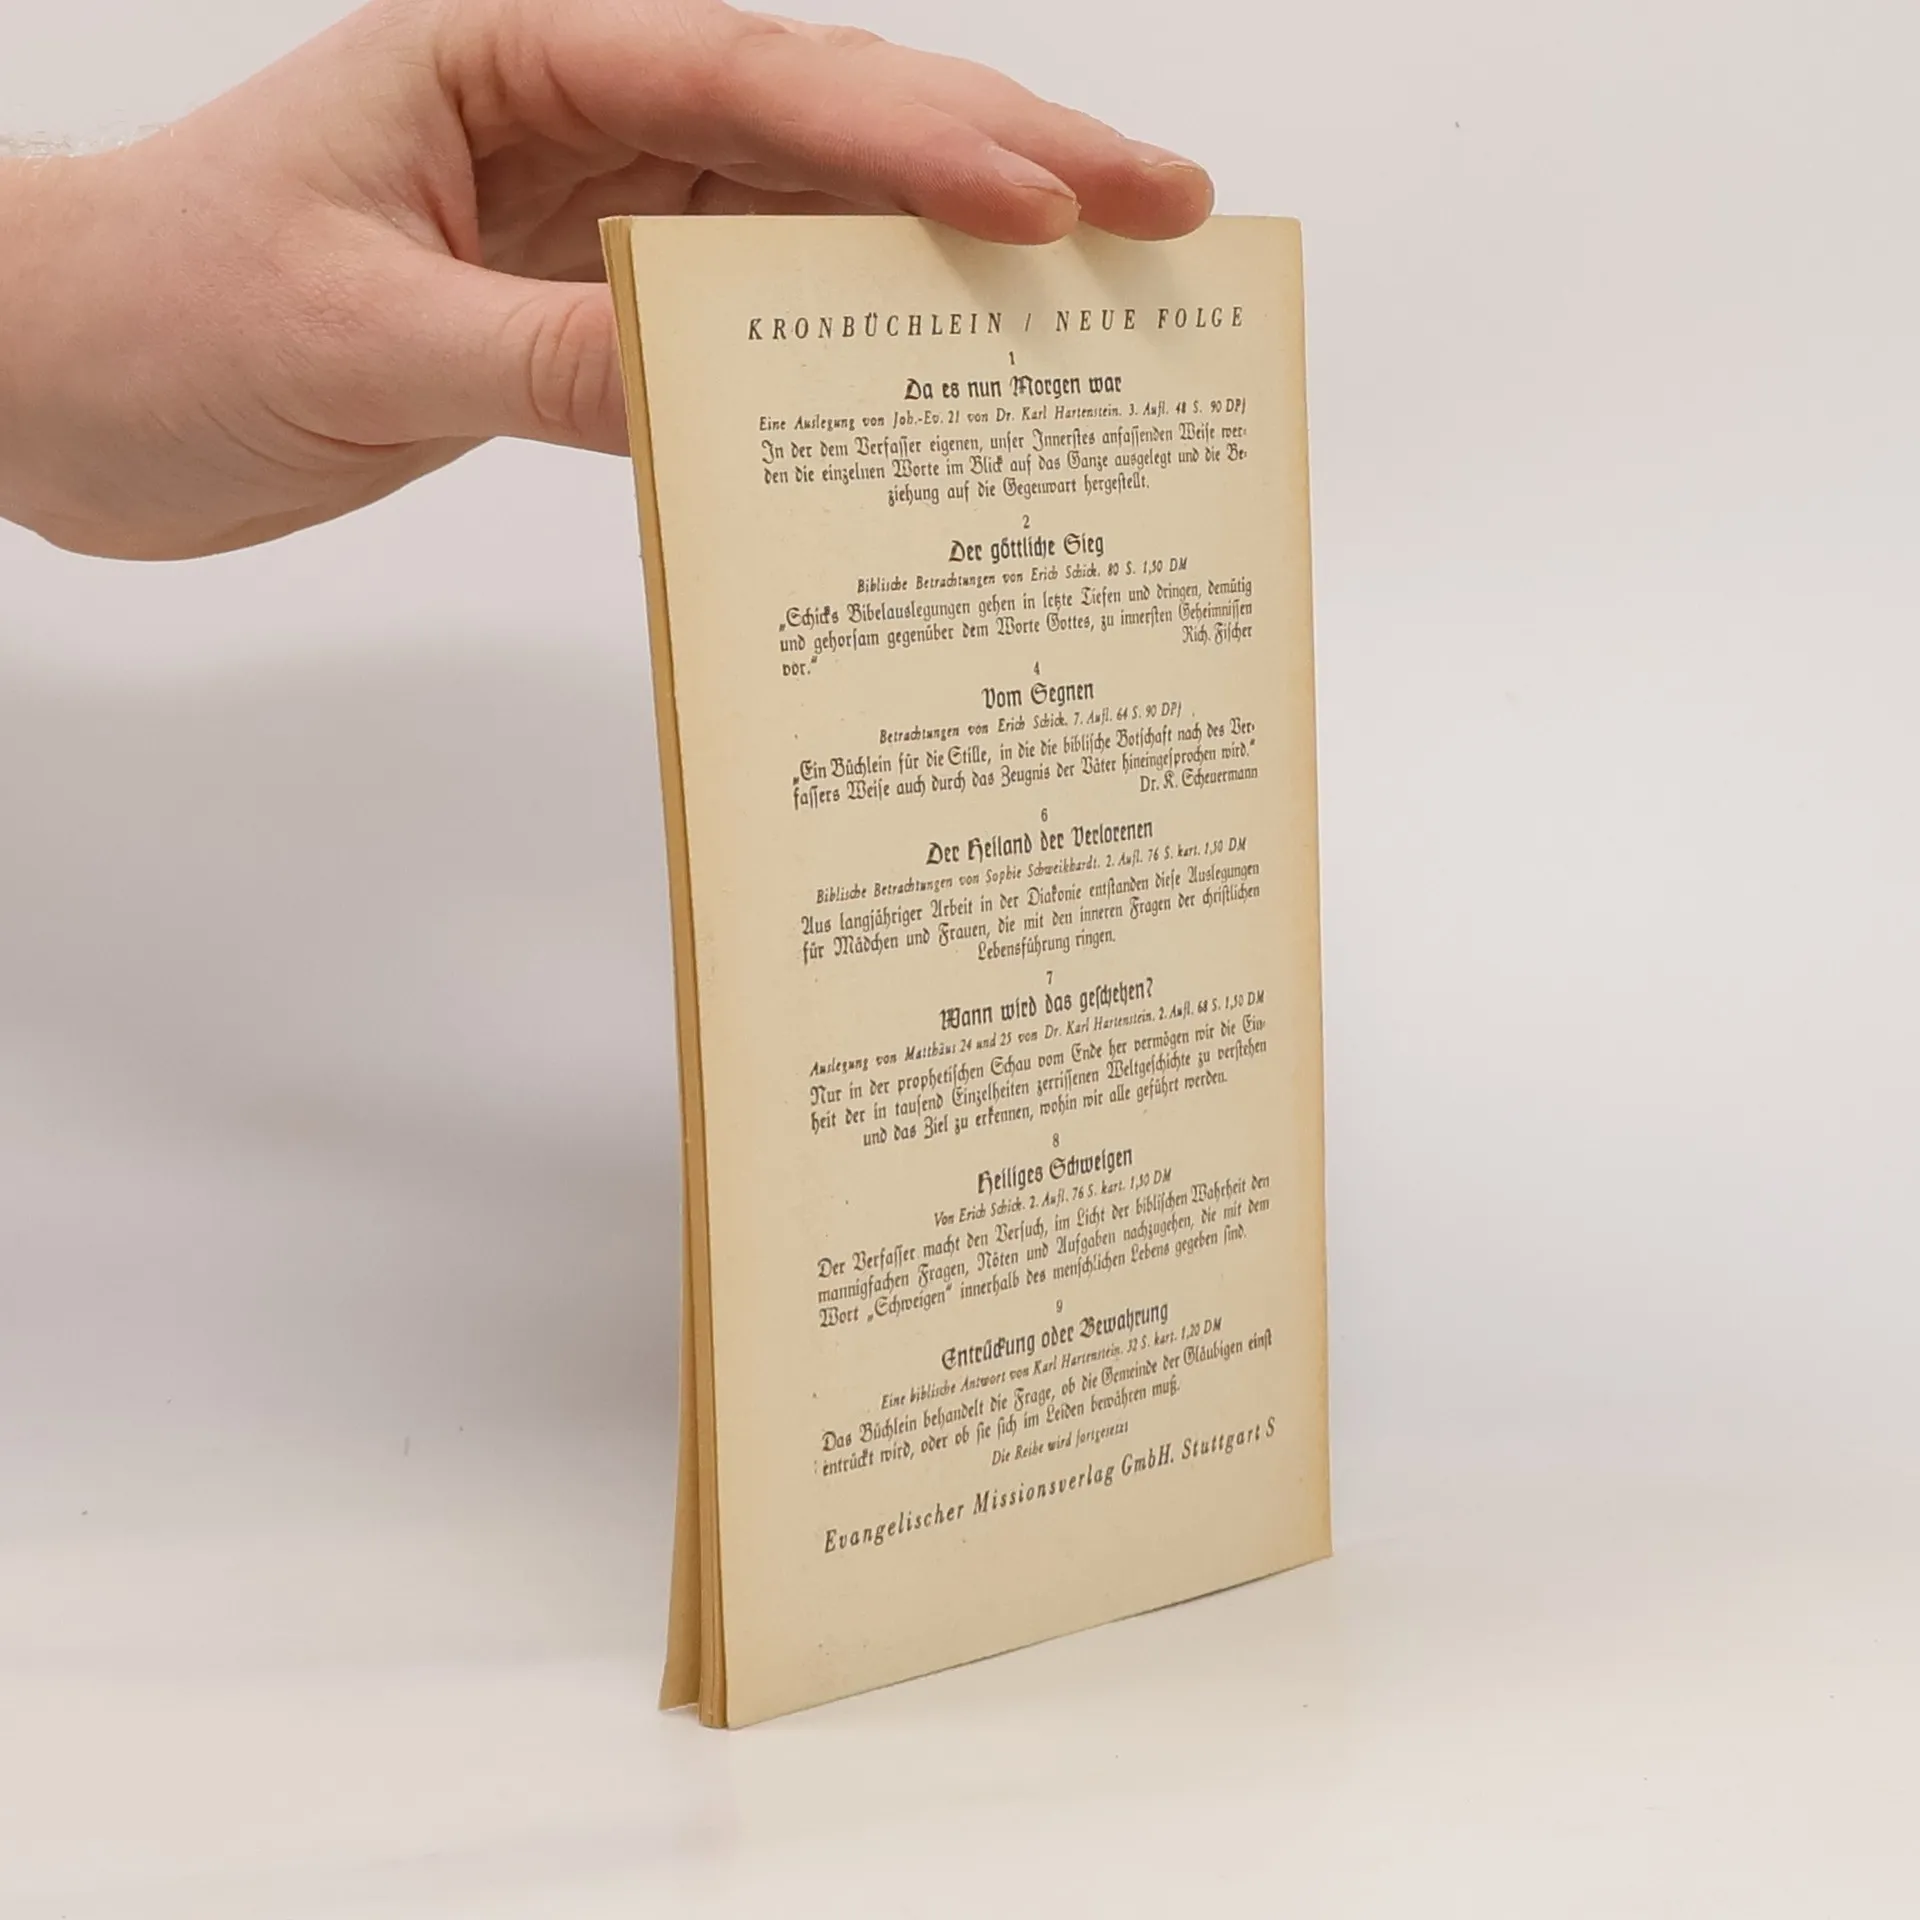 KRONBÜCHLEIN / NEUE FOLGE
1
Da es nun Morgen war
Eine Auslegung von Joh.-Ev. 21 von Dr. Karl Hartenstein. 3. Aufl. 48 S. 90 DPf
In der dem Verfaſſer eigenen, unſer Innerſtes anfaſſenden Weiſe wer-
den die einzelnen Worte im Blick auf das Ganze ausgelegt und die Be-
ziehung auf die Gegenwart hergeſtellt.
2
Der göttliche Sieg
Biblische Betrachtungen von Erich Schick. 80 S. 1,50 DM
„Schicks Bibelauslegungen gehen in letzte Tiefen und dringen, demütig
und gehorſam gegenüber dem Worte Gottes, zu innerſten Geheimniſſen
vor.“ Rich. Fiſcher
4
Vom Segnen
Betrachtungen von Erich Schick. 7. Aufl. 64 S. 90 DPf
„Ein Büchlein für die Stille, in die die bibliſche Botſchaft nach des Ver-
faſſers Weiſe auch durch das Zeugnis der Väter hineingeſprochen wird.“
Dr. K. Scheuermann
6
Der Heiland der Verlorenen
Biblische Betrachtungen von Sophie Schweikhardt. 2. Aufl. 76 S. kart. 1,50 DM
Aus langjähriger Arbeit in der Diakonie entſtanden dieſe Auslegungen
für Mädchen und Frauen, die mit den inneren Fragen der chriſtlichen
Lebensführung ringen.
7
Wann wird das geſchehen?
Auslegung von Matthäus 24 und 25 von Dr. Karl Hartenstein. 2. Aufl. 68 S. 1,50 DM
Nur in der prophetiſchen Schau vom Ende her vermögen wir die Ein-
heit der in tauſend Einzelheiten zerriſſenen Weltgeſchichte zu verſtehen
und das Ziel zu erkennen, wohin wir alle geführt werden.
8
Heiliges Schweigen
Von Erich Schick. 2. Aufl. 76 S. kart. 1,50 DM
Der Verfaſſer macht den Verſuch, im Licht der bibliſchen Wahrheit den
mannigfachen Fragen, Nöten und Aufgaben nachzugehen, die mit dem
Wort „Schweigen“ innerhalb des menſchlichen Lebens gegeben ſind.
9
Entrückung oder Bewahrung
Eine biblische Antwort von Karl Hartenstein. 32 S. kart. 1,20 DM
Das Büchlein behandelt die Frage, ob die Gemeinde der Gläubigen einſt
entrückt wird, oder ob ſie ſich im Leiden bewähren muß.
Die Reihe wird fortgesetzt
Evangelischer Missionsverlag GmbH. Stuttgart S